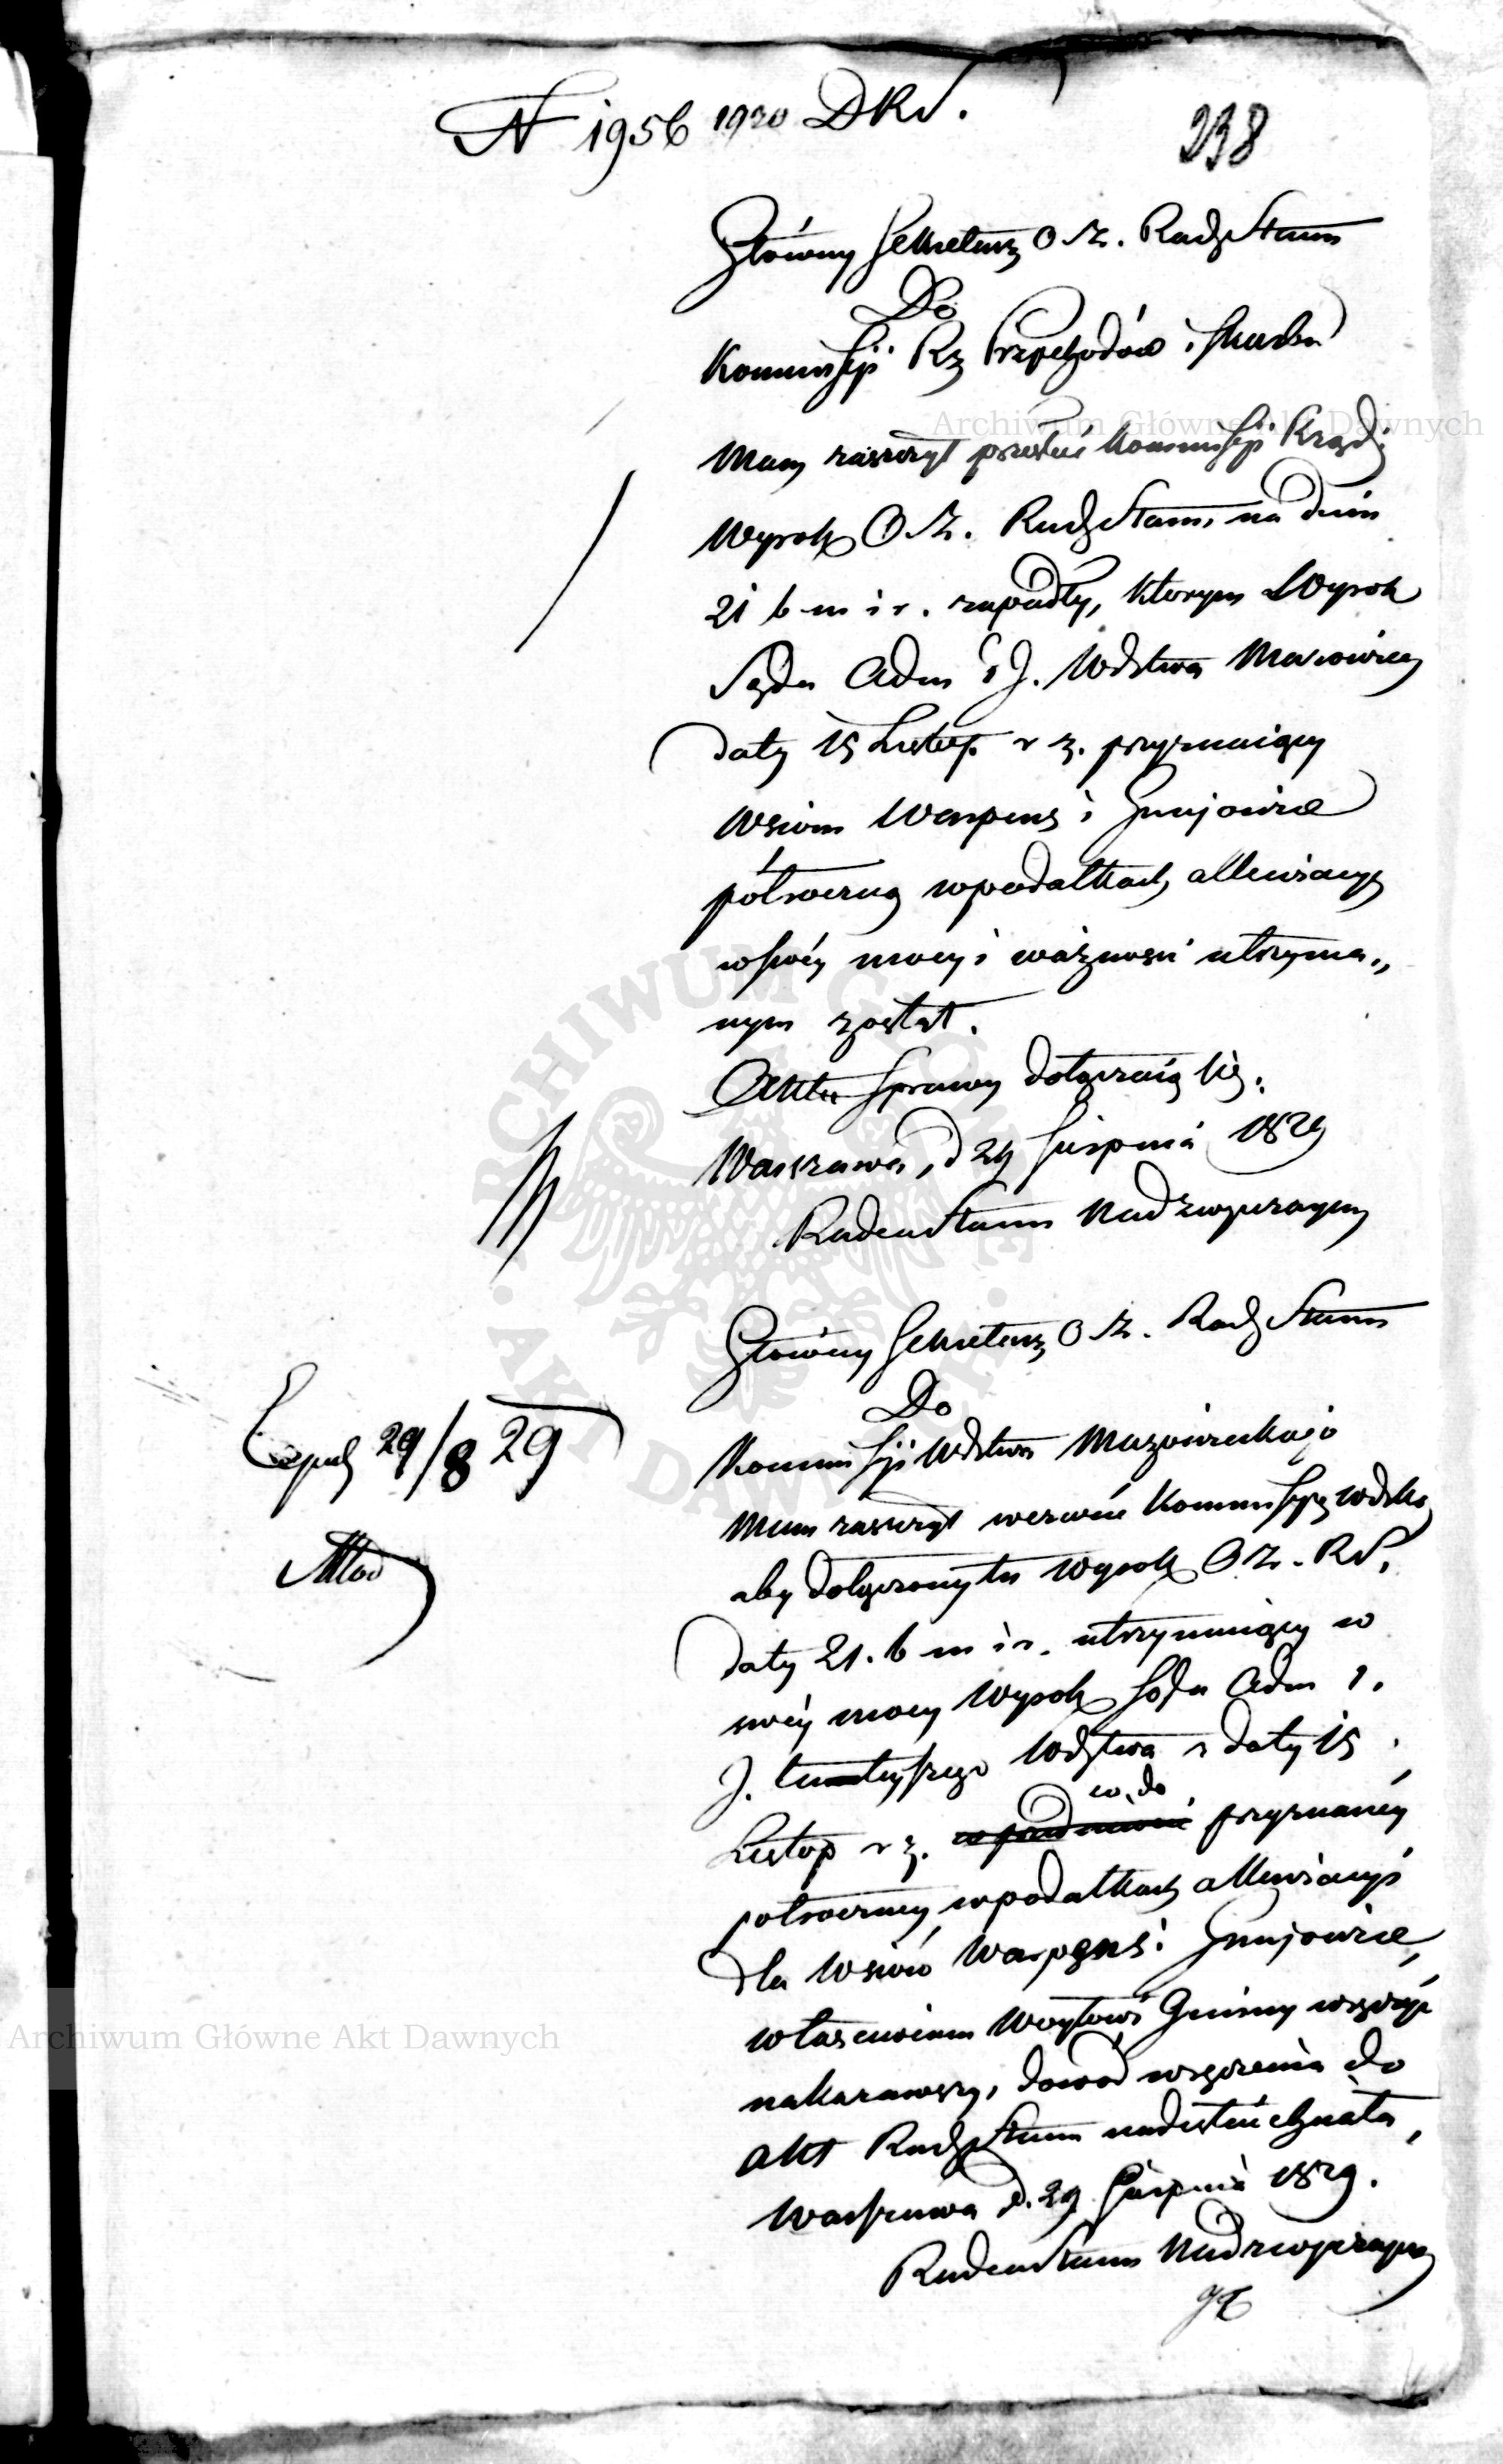 N 1956 1920 DRS.
238
Główny Sekretarz O Z. Rady Stanu
Do
Kommissji Rz Przychodów i Skarbu
Mam zaszczyt przesłać Kommissji Rząd:
Wyrok O Z. Rady Stanu na dniu
21 b m i r. zapadły, którym Wyrok
Sądu Adm 1 J. Wdztwa Mazowiec
daty 15 Listop. r z. przyznaiący
Wsiom Warpęsy i Gnojewice
półroczną w podatkach allewiacyą
w swéy mocy i ważności utrzyma„
nym został.
Akta sprawy dołączaią się.
Warszawa, d 29 Sierpnia 1829
Radca Stanu Nadzwyczayny
Główny Sekretarz O Z. Rady Stanu
Do
Kommissji Wdztwa Mazowieckiego
Mam zaszczyt wezwać Kommissyę Wdzką
aby dołączony tu Wyrok O Z. R S.
daty 21. b m i r. utrzymuiący w
swéy mocy Wyrok Sądu Adm 1.
J. tuteyszego Wdztwa z daty 15
Listop r z. co do przyznanéy
półroczney w podatkach allewiacyi
dla Wsiów Warpęsy i Gnojewice,
właściwiem Woytowi Gminy wręczyć
nakazawszy, dowód wręczenia do
Akt Rady Stanu nadesłać chciała,
Warszawa d. 29 Sierpnia 1829.
Radca Stanu Nadzwyczayny
Exped 29/8 29
Archiwum Główne Akt Dawnych
Archiwum Główne Akt Dawnych
ARCHIWUM GŁÓWNE · AKT DAWNYCH ·